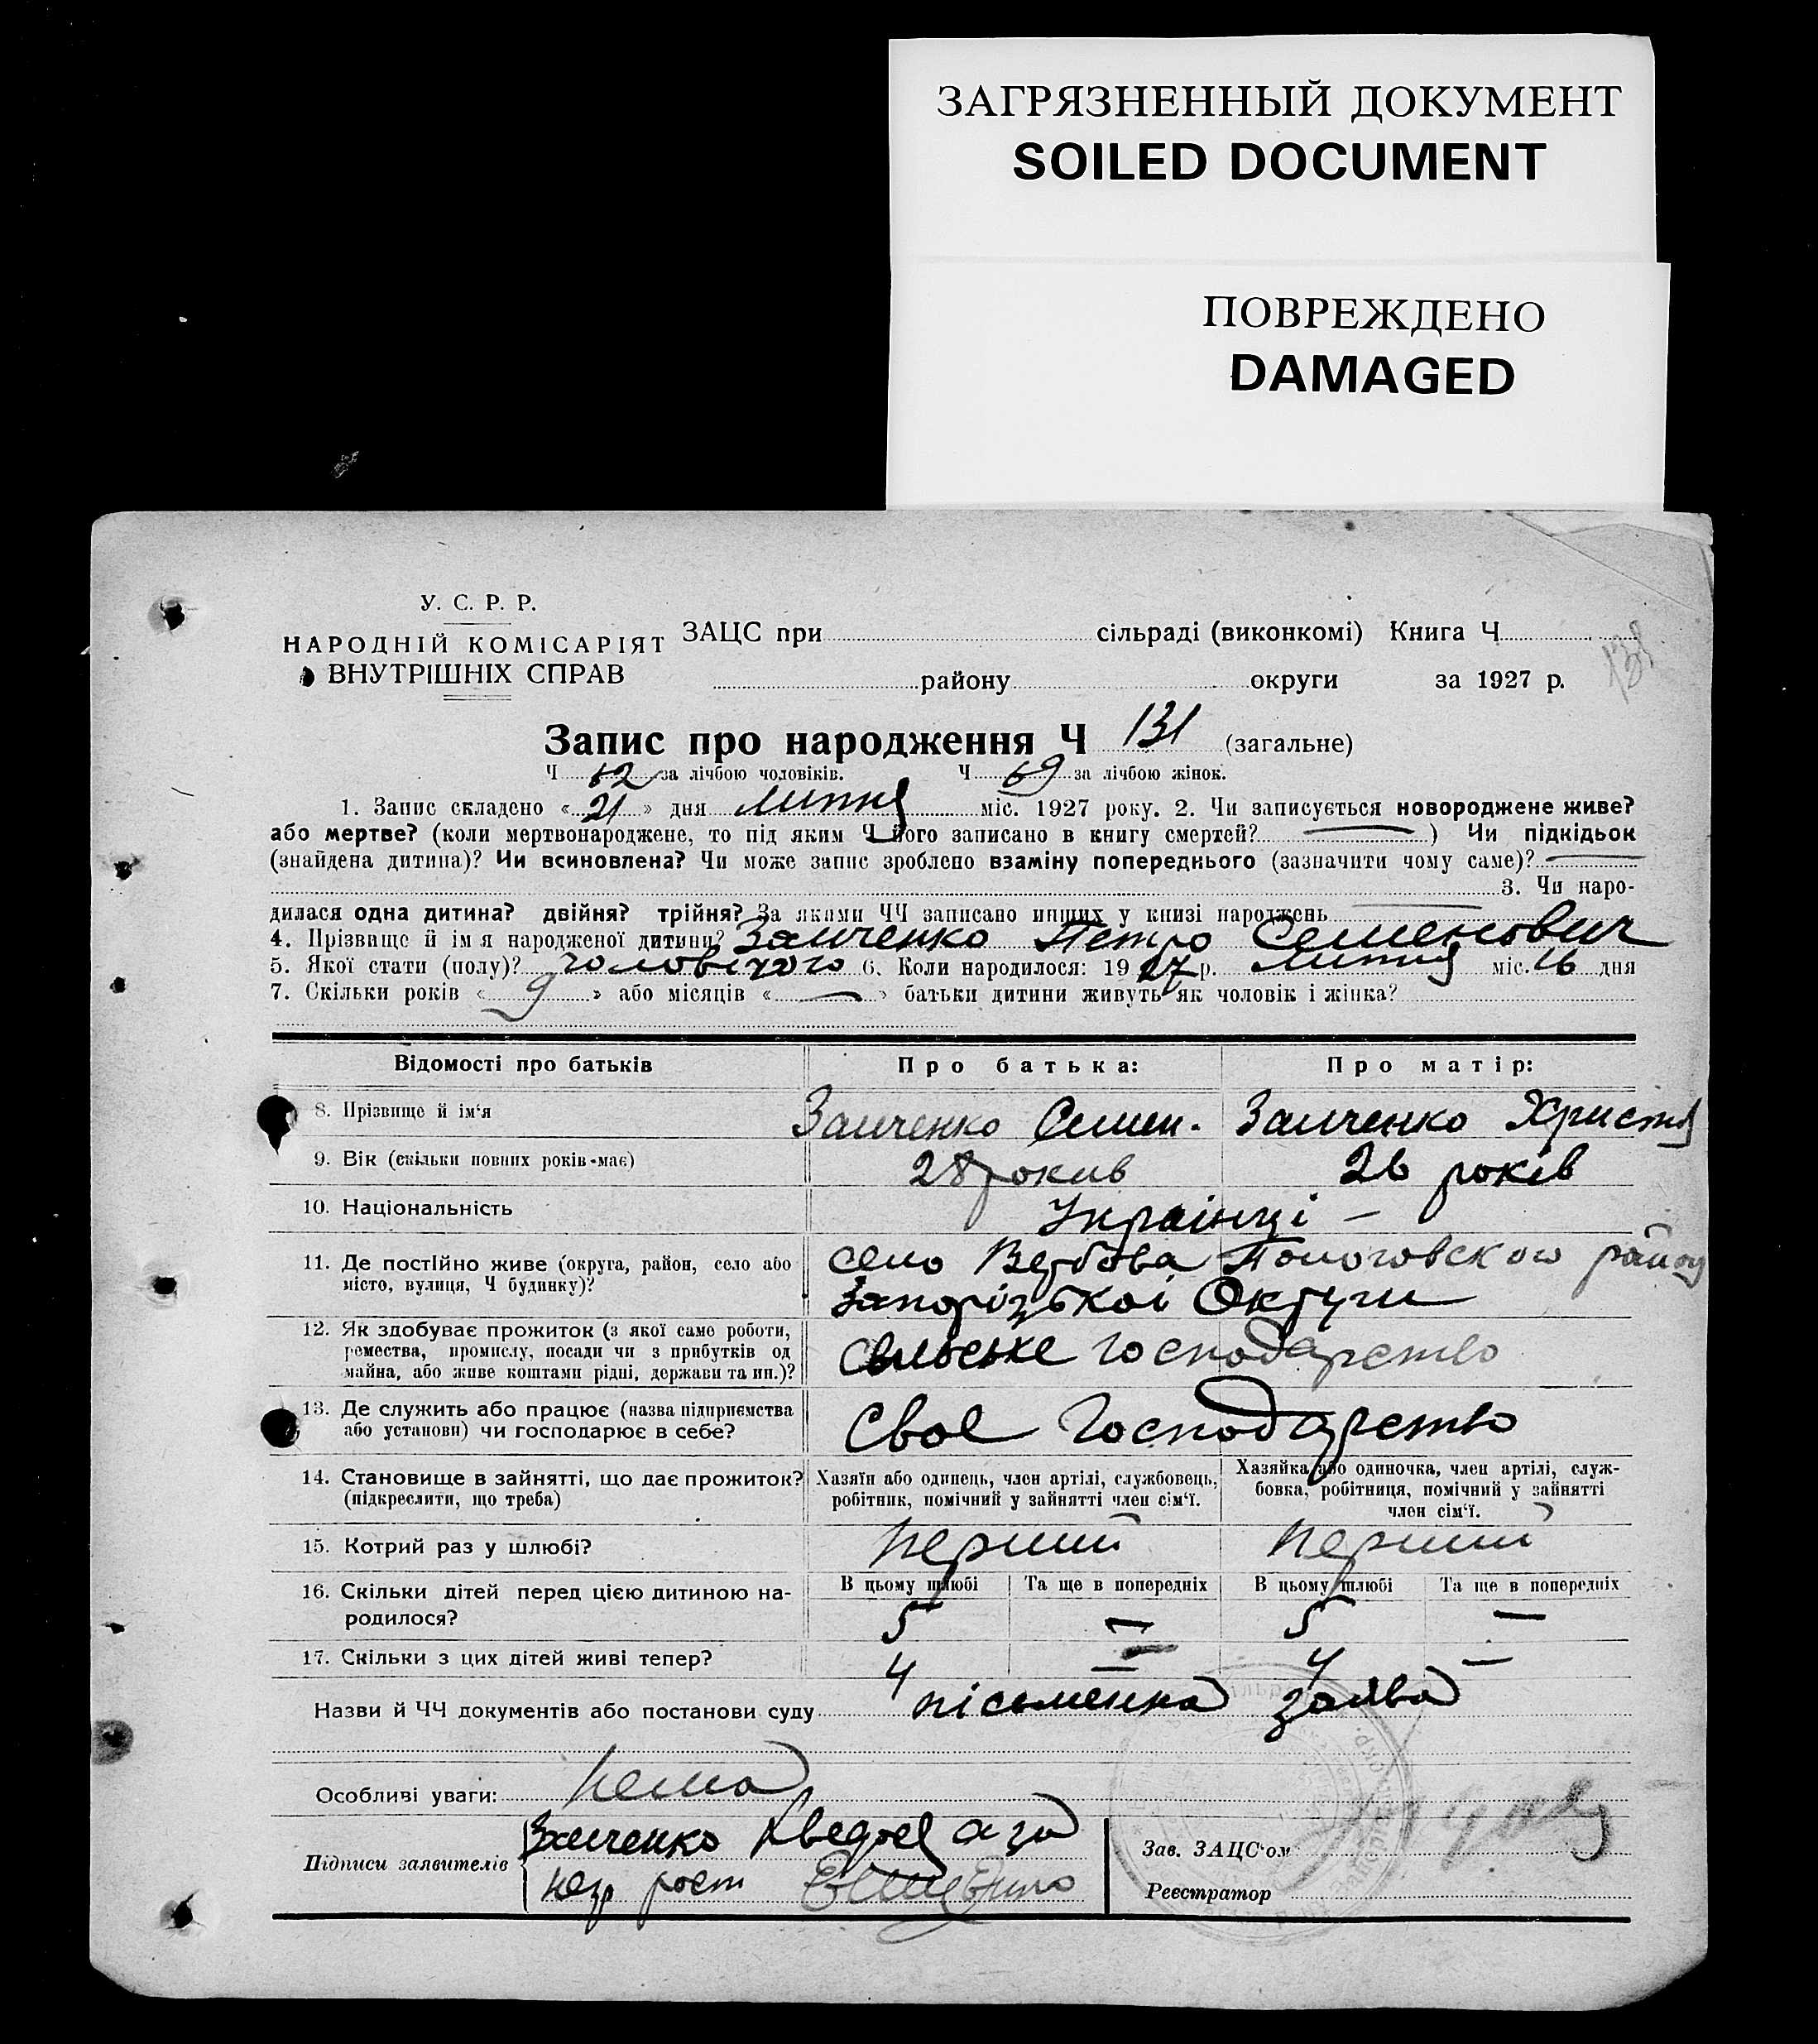 ЗАГРЯЗНЕННЫЙ ДОКУМЕНТ
SOILED DOCUMENT
ПОВРЕЖДЕНО
DAMAGED
У. С. Р. Р.
НАРОДНІЙ КОМІСАРІЯТ
ВНУТРІШНІХ СПРАВ
ЗАЦС при сільраді (виконкомі) Книга Ч
району округи за 1927 р.
138
Запис про народження Ч 131 (загальне)
Ч 62 за лічбою чоловіків. Ч 69 за лічбою жінок.
1. Запис складено «21» дня Липня міс. 1927 року. 2. Чи записується новороджене живе?
або мертве? (коли мертвонароджене, то під яким Ч його записано в книгу смертей? —) Чи підкідьок
(знайдена дитина)? Чи всиновлена? Чи може запис зроблено взаміну попереднього (зазначити чому саме)? —
3. Чи наро-
дилася одна дитина? двійня? трійня? За якими ЧЧ записано инших у книзі народжень —
4. Прізвище й ім я народженої дитини? Заиченко Петро Семенович
5. Якої стати (полу)? чоловічого 6. Коли народилося: 1927 р. Липня міс. 16 дня
7. Скільки років «9» або місяців «—» батьки дитини живуть як чоловік і жінка?
Відомості про батьків Про батька: Про матір:
8. Прізвище й ім'я Заиченко Семен. Заиченко Христя
9. Вік (скільки повних років має) 28 рокив 26 років
10. Національність Українці —
11. Де постійно живе (округа, район, село або село Вербова Пологовского району
місто, вулиця, Ч будинку)? Запорізькоі Округи
12. Як здобуває прожиток (з якої саме роботи,
ремества, промислу, посади чи з прибутків од
майна, або живе коштами рідні, держави та ин.)? сильське господарство
13. Де служить або працює (назва підприємства
або установи) чи господарює в себе? Своє Господарство
14. Становище в зайнятті, що дає прожиток?
(підкреслити, що треба)
Хазяїн або одинець, член артілі, службовець,
робітник, помічний у зайнятті член сім'ї.
Хазяйка або одиночка, член артілі, служ-
бовка, робітниця, помічний у зайнятті
член сім'ї.
15. Котрий раз у шлюбі? перший перший
16. Скільки дітей перед цією дитиною на-
родилося?
В цьому шлюбі Та ще в попередніх В цьому шлюбі Та ще в попередніх
5 — 5 —
17. Скільки з цих дітей живі тепер? 4 — 4 —
Назви й ЧЧ документів або постанови суду письменна заява
Особливі уваги: нема
Підписи заявителів Заиченко а за
нез рост
Зав. ЗАЦС'ом
Реєстратор